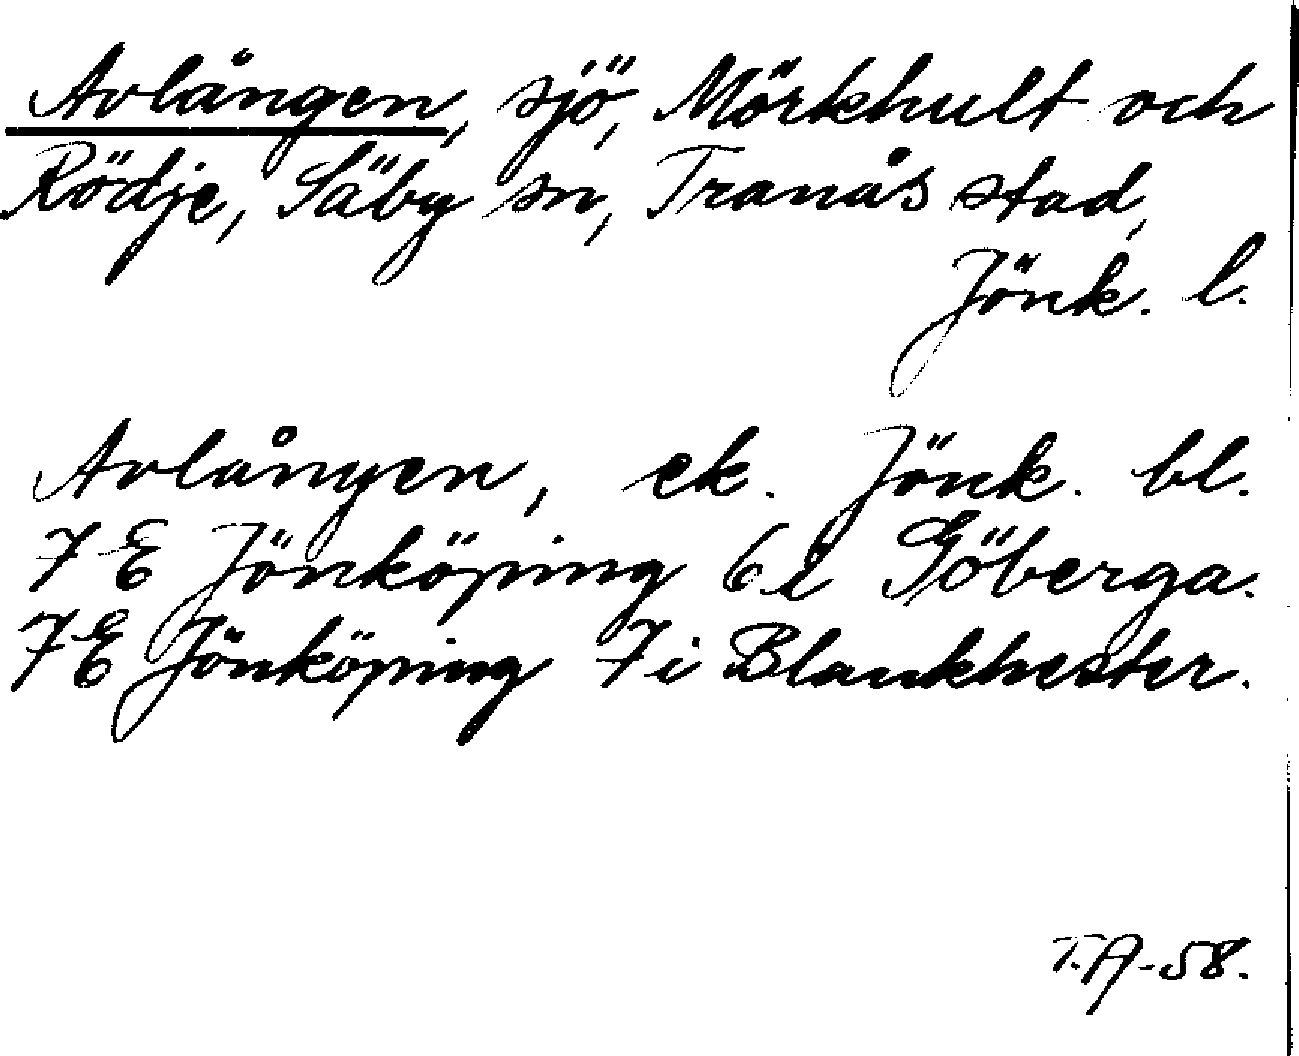 Avlången, sjö, Mörkhult och
Rödje, Säby sn, Tranås stad,
Jönk. l.
Avlången, ek. Jönk. bl.
7 E Jönköping 6i Göberga.
7E Jönköping 7i Blankhester.
T.A-58.